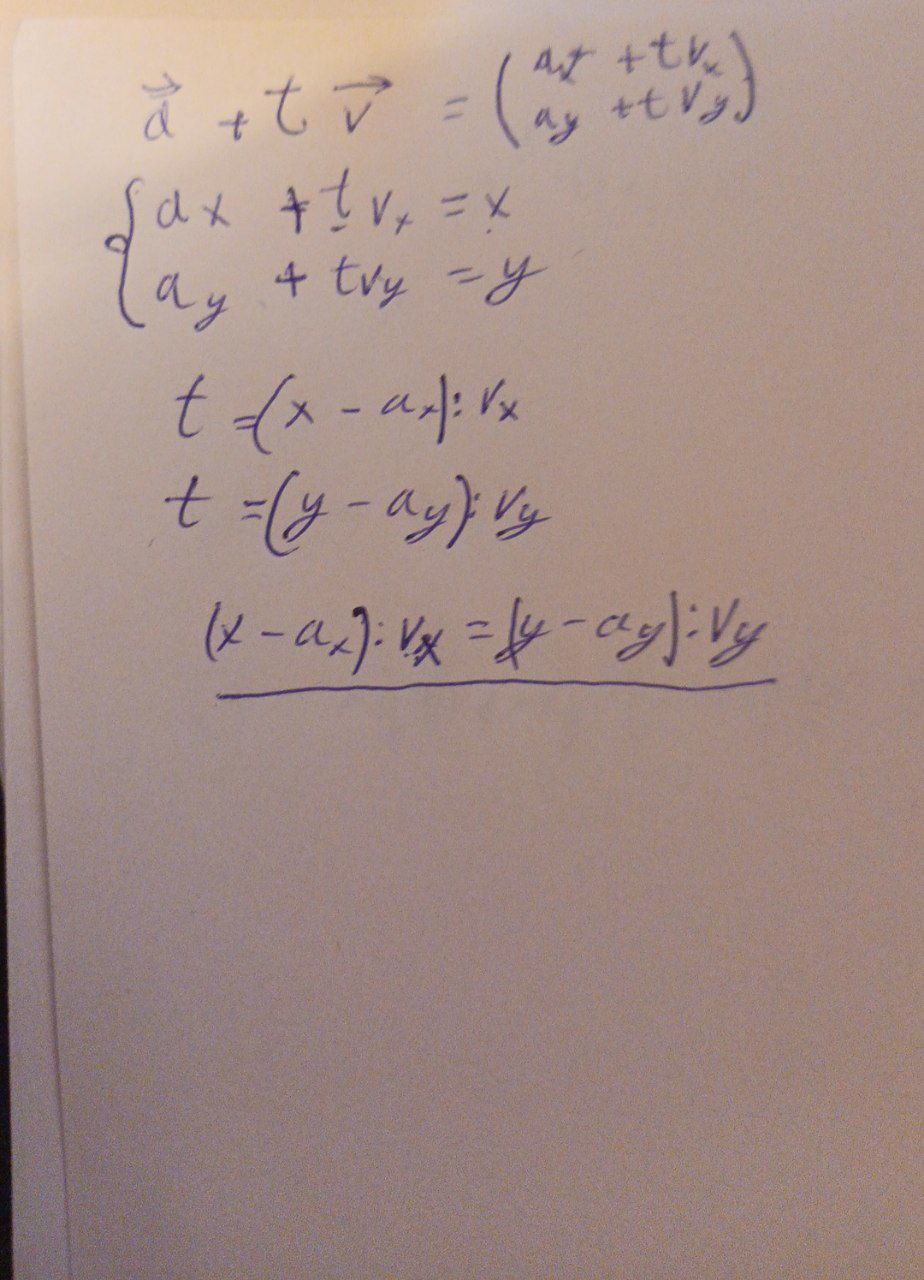 a⃗ + t v⃗ = (ax + t vx
ay + t vy)
{ax + t vx = x
ay + t vy = y
t = (x - ax) : vx
t = (y - ay) : vy
(x - ax) : vx = (y - ay) : vy